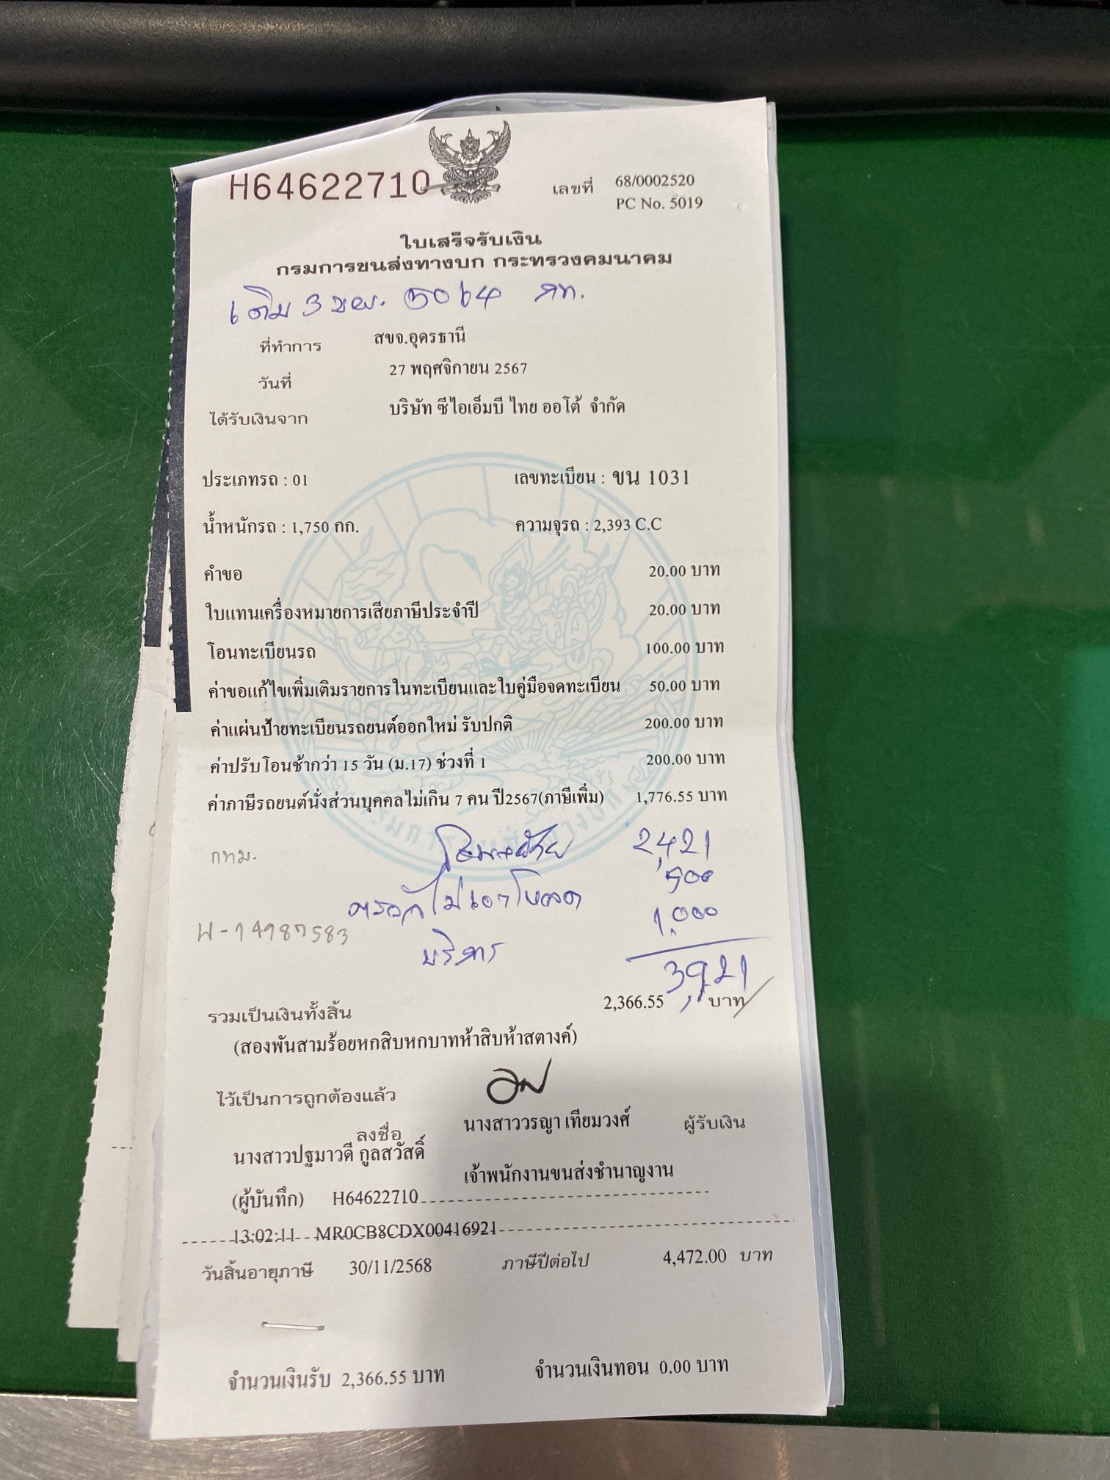 H64622710
เลขที่ 68/0002520
PC No. 5019
ใบเสร็จรับเงิน
กรมการขนส่งทางบก กระทรวงคมนาคม
เดิม 3 ขย. 5064 กท.
ที่ทำการ สขจ.อุดรธานี
วันที่ 27 พฤศจิกายน 2567
ได้รับเงินจาก บริษัท ซีไอเอ็มบี ไทย ออโต้ จำกัด
ประเภทรถ : 01 เลขทะเบียน : ขน 1031
น้ำหนักรถ : 1,750 กก. ความจุรถ : 2,393 C.C
คำขอ 20.00 บาท
ใบแทนเครื่องหมายการเสียภาษีประจำปี 20.00 บาท
โอนทะเบียนรถ 100.00 บาท
ค่าขอแก้ไขเพิ่มเติมรายการในทะเบียนและใบคู่มือจดทะเบียน 50.00 บาท
ค่าแผ่นป้ายทะเบียนรถยนต์ออกใหม่ รับปกติ 200.00 บาท
ค่าปรับโอนช้ากว่า 15 วัน (ม.17) ช่วงที่ 1 200.00 บาท
ค่าภาษีรถยนต์นั่งส่วนบุคคลไม่เกิน 7 คน ปี2567(ภาษีเพิ่ม) 1,776.55 บาท
กทม. 2,421
500
ตรอ ไม่เอาโหลด 1,000
บริการ
3,921
รวมเป็นเงินทั้งสิ้น 2,366.55 บาท
(สองพันสามร้อยหกสิบหกบาทห้าสิบห้าสตางค์)
ไว้เป็นการถูกต้องแล้ว
ลงชื่อ นางสาววรญา เทียมวงศ์ ผู้รับเงิน
นางสาวปฐมาวดี กูลสวัสดิ์
เจ้าพนักงานขนส่งชำนาญงาน
(ผู้บันทึก) H64622710
13:02:11 MR0CB8CDX00416921
วันสิ้นอายุภาษี 30/11/2568 ภาษีปีต่อไป 4,472.00 บาท
จำนวนเงินรับ 2,366.55 บาท จำนวนเงินทอน 0.00 บาท